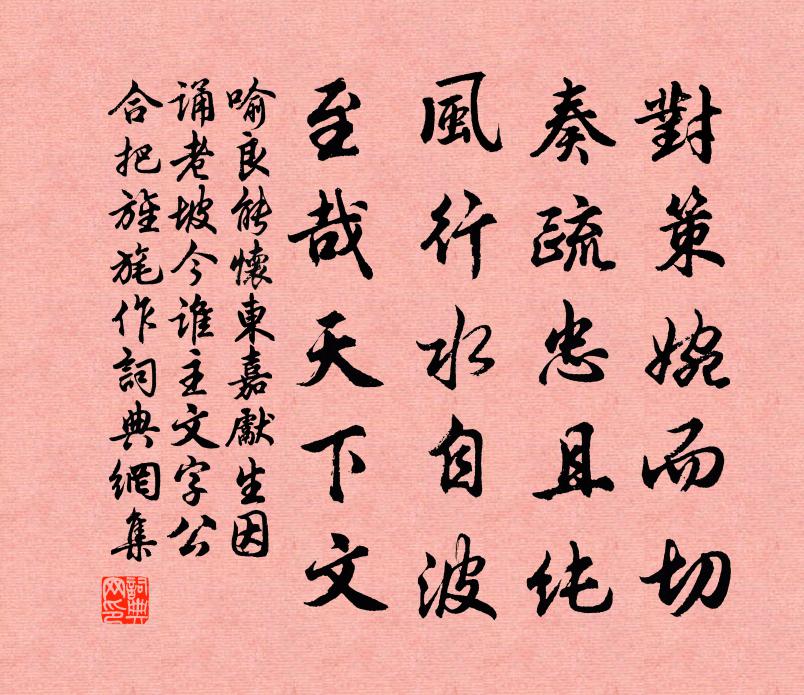 對策婉而切
奏疏忠且纯
風行水自波
至哉天下文
喻良能懷東嘉獻生因
誦老坡今谁主文字公
合把旌旄作詞典網集
詞典网印